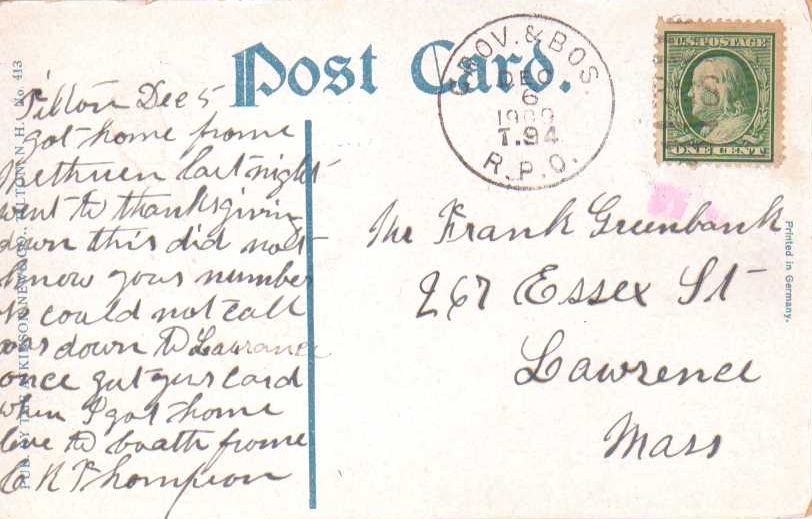 Post Card.
GROV. & BOS.
DEC
6
1909
T. 94
R.P.O.
U.S. POSTAGE
ONE CENT
Tilton Dec 5
got home frome
Methuen last night
went to thanksgivin
down this did not
know your number
so could not call
was down to Lawrance
once gut yur card
when I got home
love to boath frome
E N Thompson
Mr Frank Greenbank
267 Essex St
Lawrence
Mass
PUB. BY THE ATKINSON NEWS CO., TILTON, N. H. No. 413
Printed in Germany.